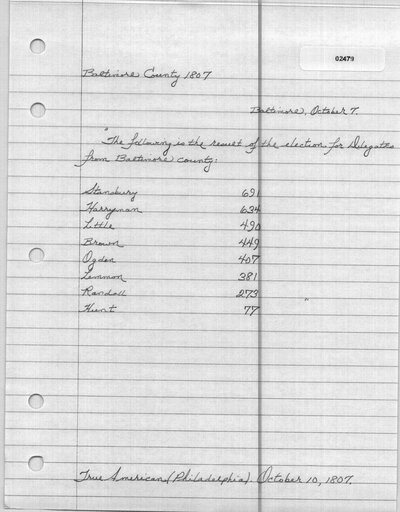 02479
Baltimore County 1807
Baltimore, October 7.
"The following is the result of the election for Delegates
from Baltimore county:
Stansbury 691
Harryman 634
Little 490
Brown 449
Ogden 407
Lemmon 381
Randall 273 "
Hunt 77
True American (Philadelphia). October 10, 1807.